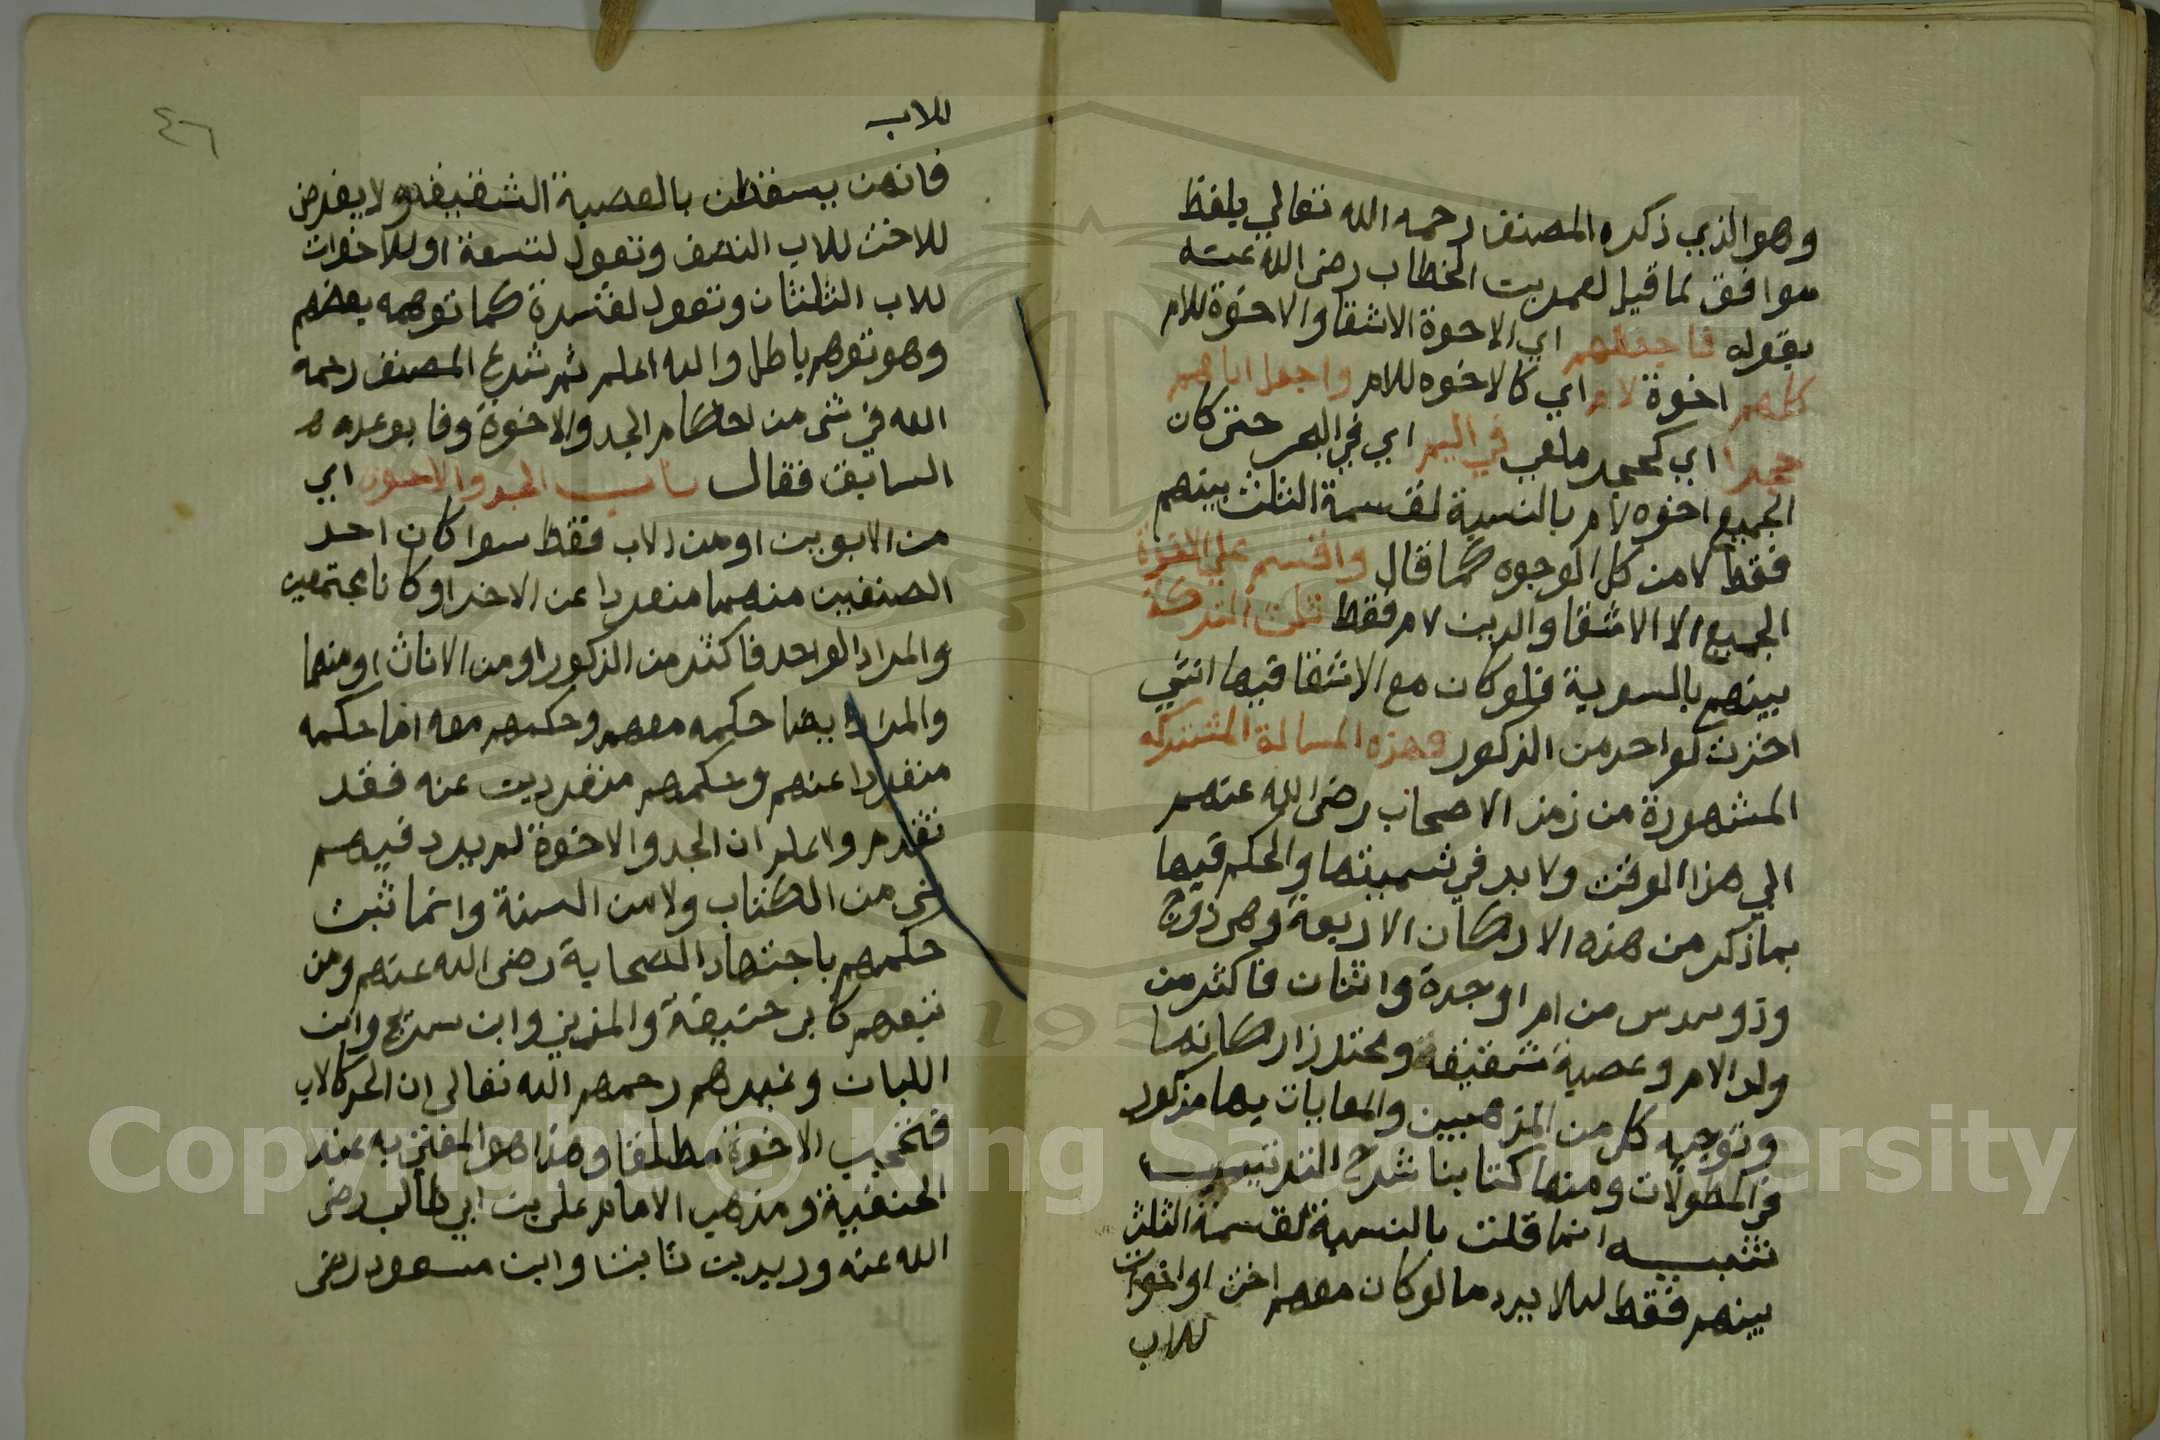 وهو الذي ذكره المصنف رحمه الله تعالي بلفظ
موافق لما قيل لعمر بن الخطاب رضى الله عنه
بقوله فاجعلهم اي الاخوة الاشقا والاخوة للام
كلهم اخوة لام اي كالاخوه للام واجعل اباهم
حجرا اي كحجر ملقي في اليم اي في البحر حتى كان
الجميع اخوه لام بالنسبة لقسمة الثلث بينهم
فقط لا من كل الوجوه كما قال واقسم علي الاخوة
الجميع الاشقا والدين لام فقط ثلث التركة
بينهم بالسوية فلو كان مع الاشقا فيها انثي
اخذت كواحد من الذكور وهذه المسالة المشتركه
المشهورة من زمن الاصحاب رضى الله عنهم
الي هذا الوقت ولا بد في تسميتها والحكم فيها
بما ذكر من هذه الاركان الاربعة وهي زوج
وذو سدس من ام او جدة واثنان فاكثر من
ولد الام وعصبة شقيقة ومحترز اركانها
وتوجيه كل من المذهبين والمعايات بها مذكور
في المطولات ومنها كتابنا شرح الترتيب
تنبيه انما قلت بالنسبة لقسمة الثلث
بينهم فقط ليلا يرد ما لو كان معهم اخت او اخوات
للاب
٤٦
للاب
فانهن يسقطن بالعصبة الشقيقه ولا يفرض
للاخت للاب النصف وتعول لتسعة او للاخوات
للاب الثلثان وتعول لعشرة كما توهمه بعضهم
وهو توهم باطل والله اعلم ثم شرع المصنف رحمه
الله في شى من احكام الجد والاخوة وفا بوعده
السابق فقال باب الجد والاخوة اي
من الابوين او من الاب فقط سوا كان احد
الصنفين منهما منفردا عن الاخر او كانا مجتمعين
والمراد الواحد فاكثر من الذكور او من الاناث او منهما
والمراد بيضا حكمه معهم وحكمهم معه اما حكمه
منفردا عنهم وحكمهم منفردين عنه فقد
تقدم واعلم ان الجد والاخوة لم يرد فيهم
شي من الكتاب ولا من السنة وانما ثبت
حكمهم باجتهاد الصحابة رضى الله عنهم ومن
تبعهم كابي حنيفة والمزني وابن سريج وابن
اللبان وغيرهم رحمهم الله تعالى ان الجد كالاب
فتحجب الاخوة مطلقا وهذا هو المفتي به عند
الحنفية ومذهب الامام علي بن ابي طالب رضى
الله عنه وزيد بن ثابت وابن مسعود رضى
Copyright © King Saud University
195